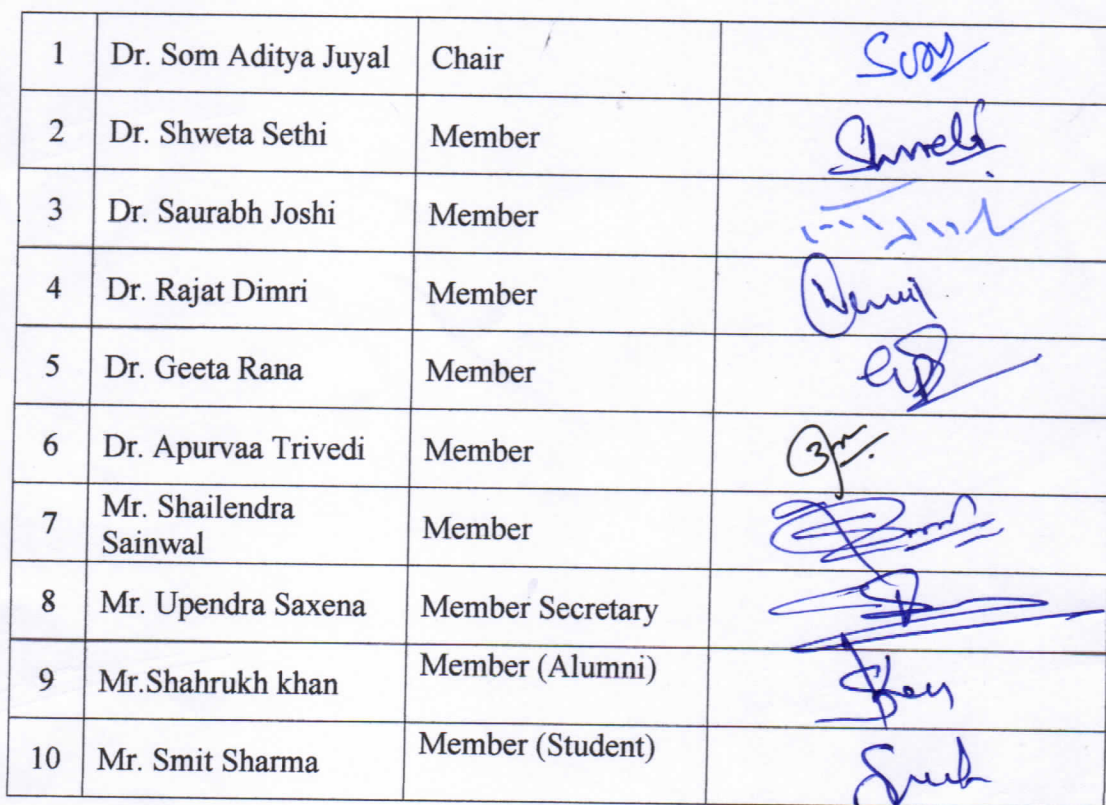 1 Dr. Som Aditya Juyal Chair
2 Dr. Shweta Sethi Member
3 Dr. Saurabh Joshi Member
4 Dr. Rajat Dimri Member
5 Dr. Geeta Rana Member
6 Dr. Apurvaa Trivedi Member
7 Mr. Shailendra
Sainwal Member
8 Mr. Upendra Saxena Member Secretary
9 Mr.Shahrukh khan Member (Alumni)
10 Mr. Smit Sharma Member (Student)